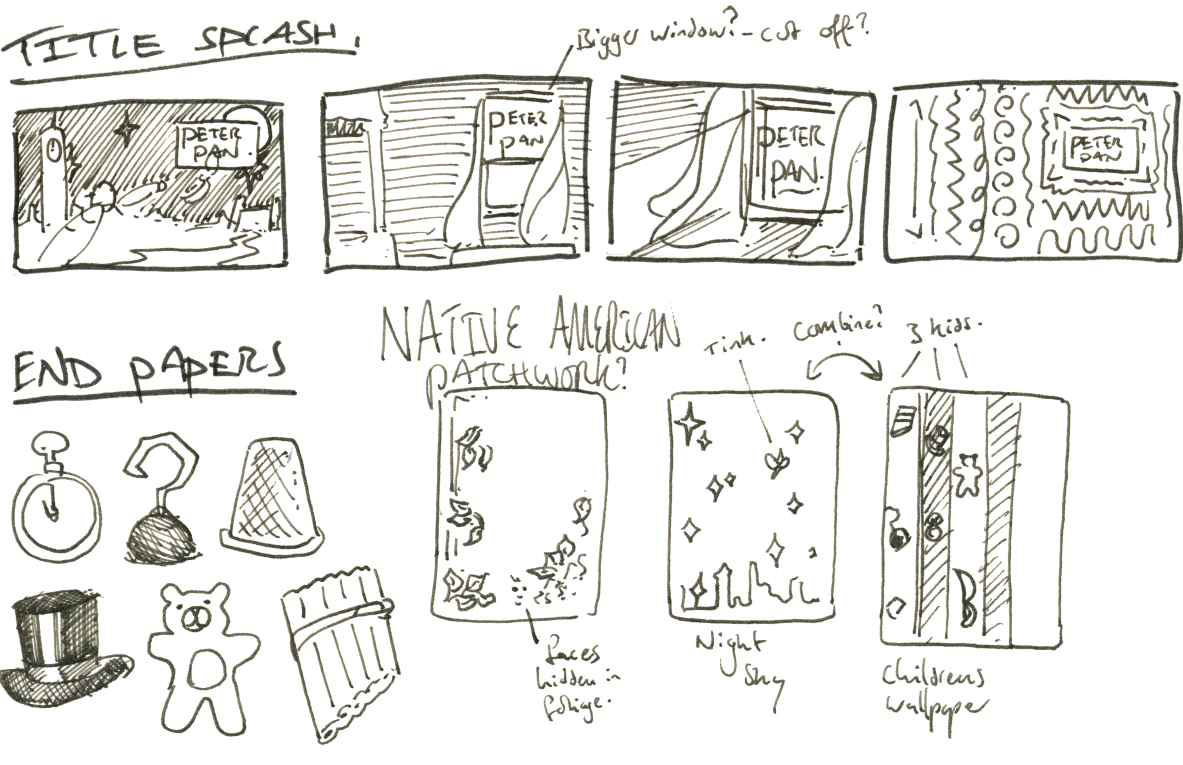 TITLE SPLASH.
Bigger window? - cut off?
PETER
PAN.
PETER
PAN
PETER
PAN.
PETER
PAN
END PAPERS
NATIVE AMERICAN
PATCHWORK?
Tink.
Combine?
3 kids.
faces
hidden in
foliage.
Night
Sky
Childrens
wallpaper